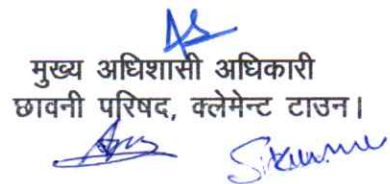 मुख्य अधिशासी अधिकारी
छावनी परिषद, क्लेमेन्ट टाउन।